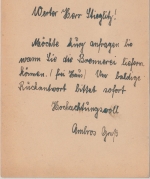 Werter Herr Stieglitz!
Möchte kurz anfragen bis
wann Sie das Brennerei liefern
können. (frei Haus) Um baldige
Rückantwort bittet sofort
Hochachtungsvoll
Ambros